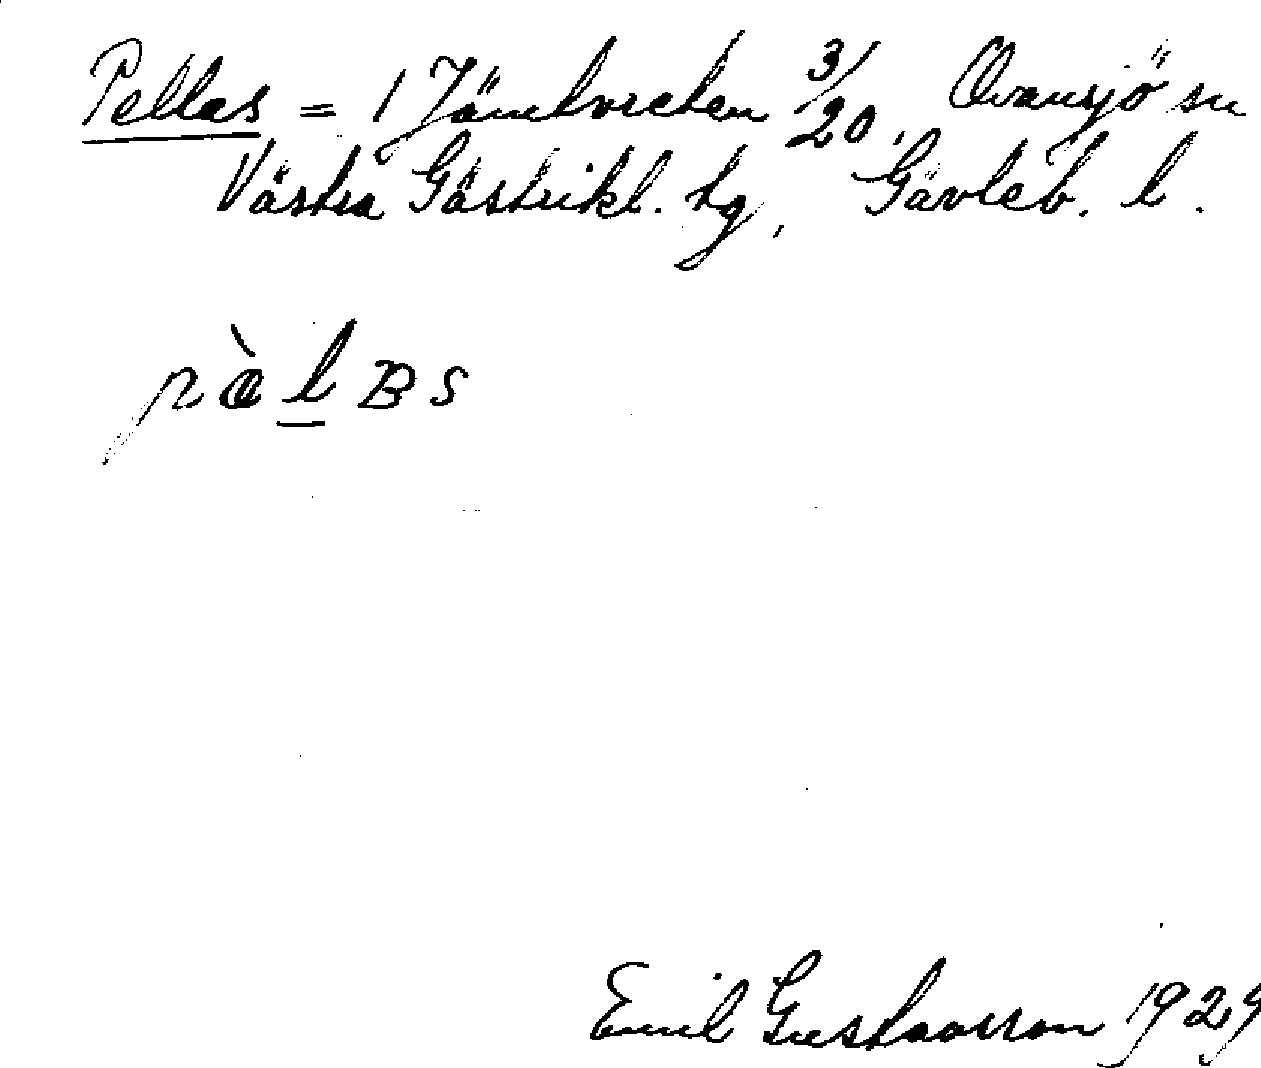 Pellas = 1 Jämtvreten 3/20, Ovansjö sn
Västra Gästrikl. tg, Gävleb. l.
pæ̀lBs
Emil Gustavsson 1929